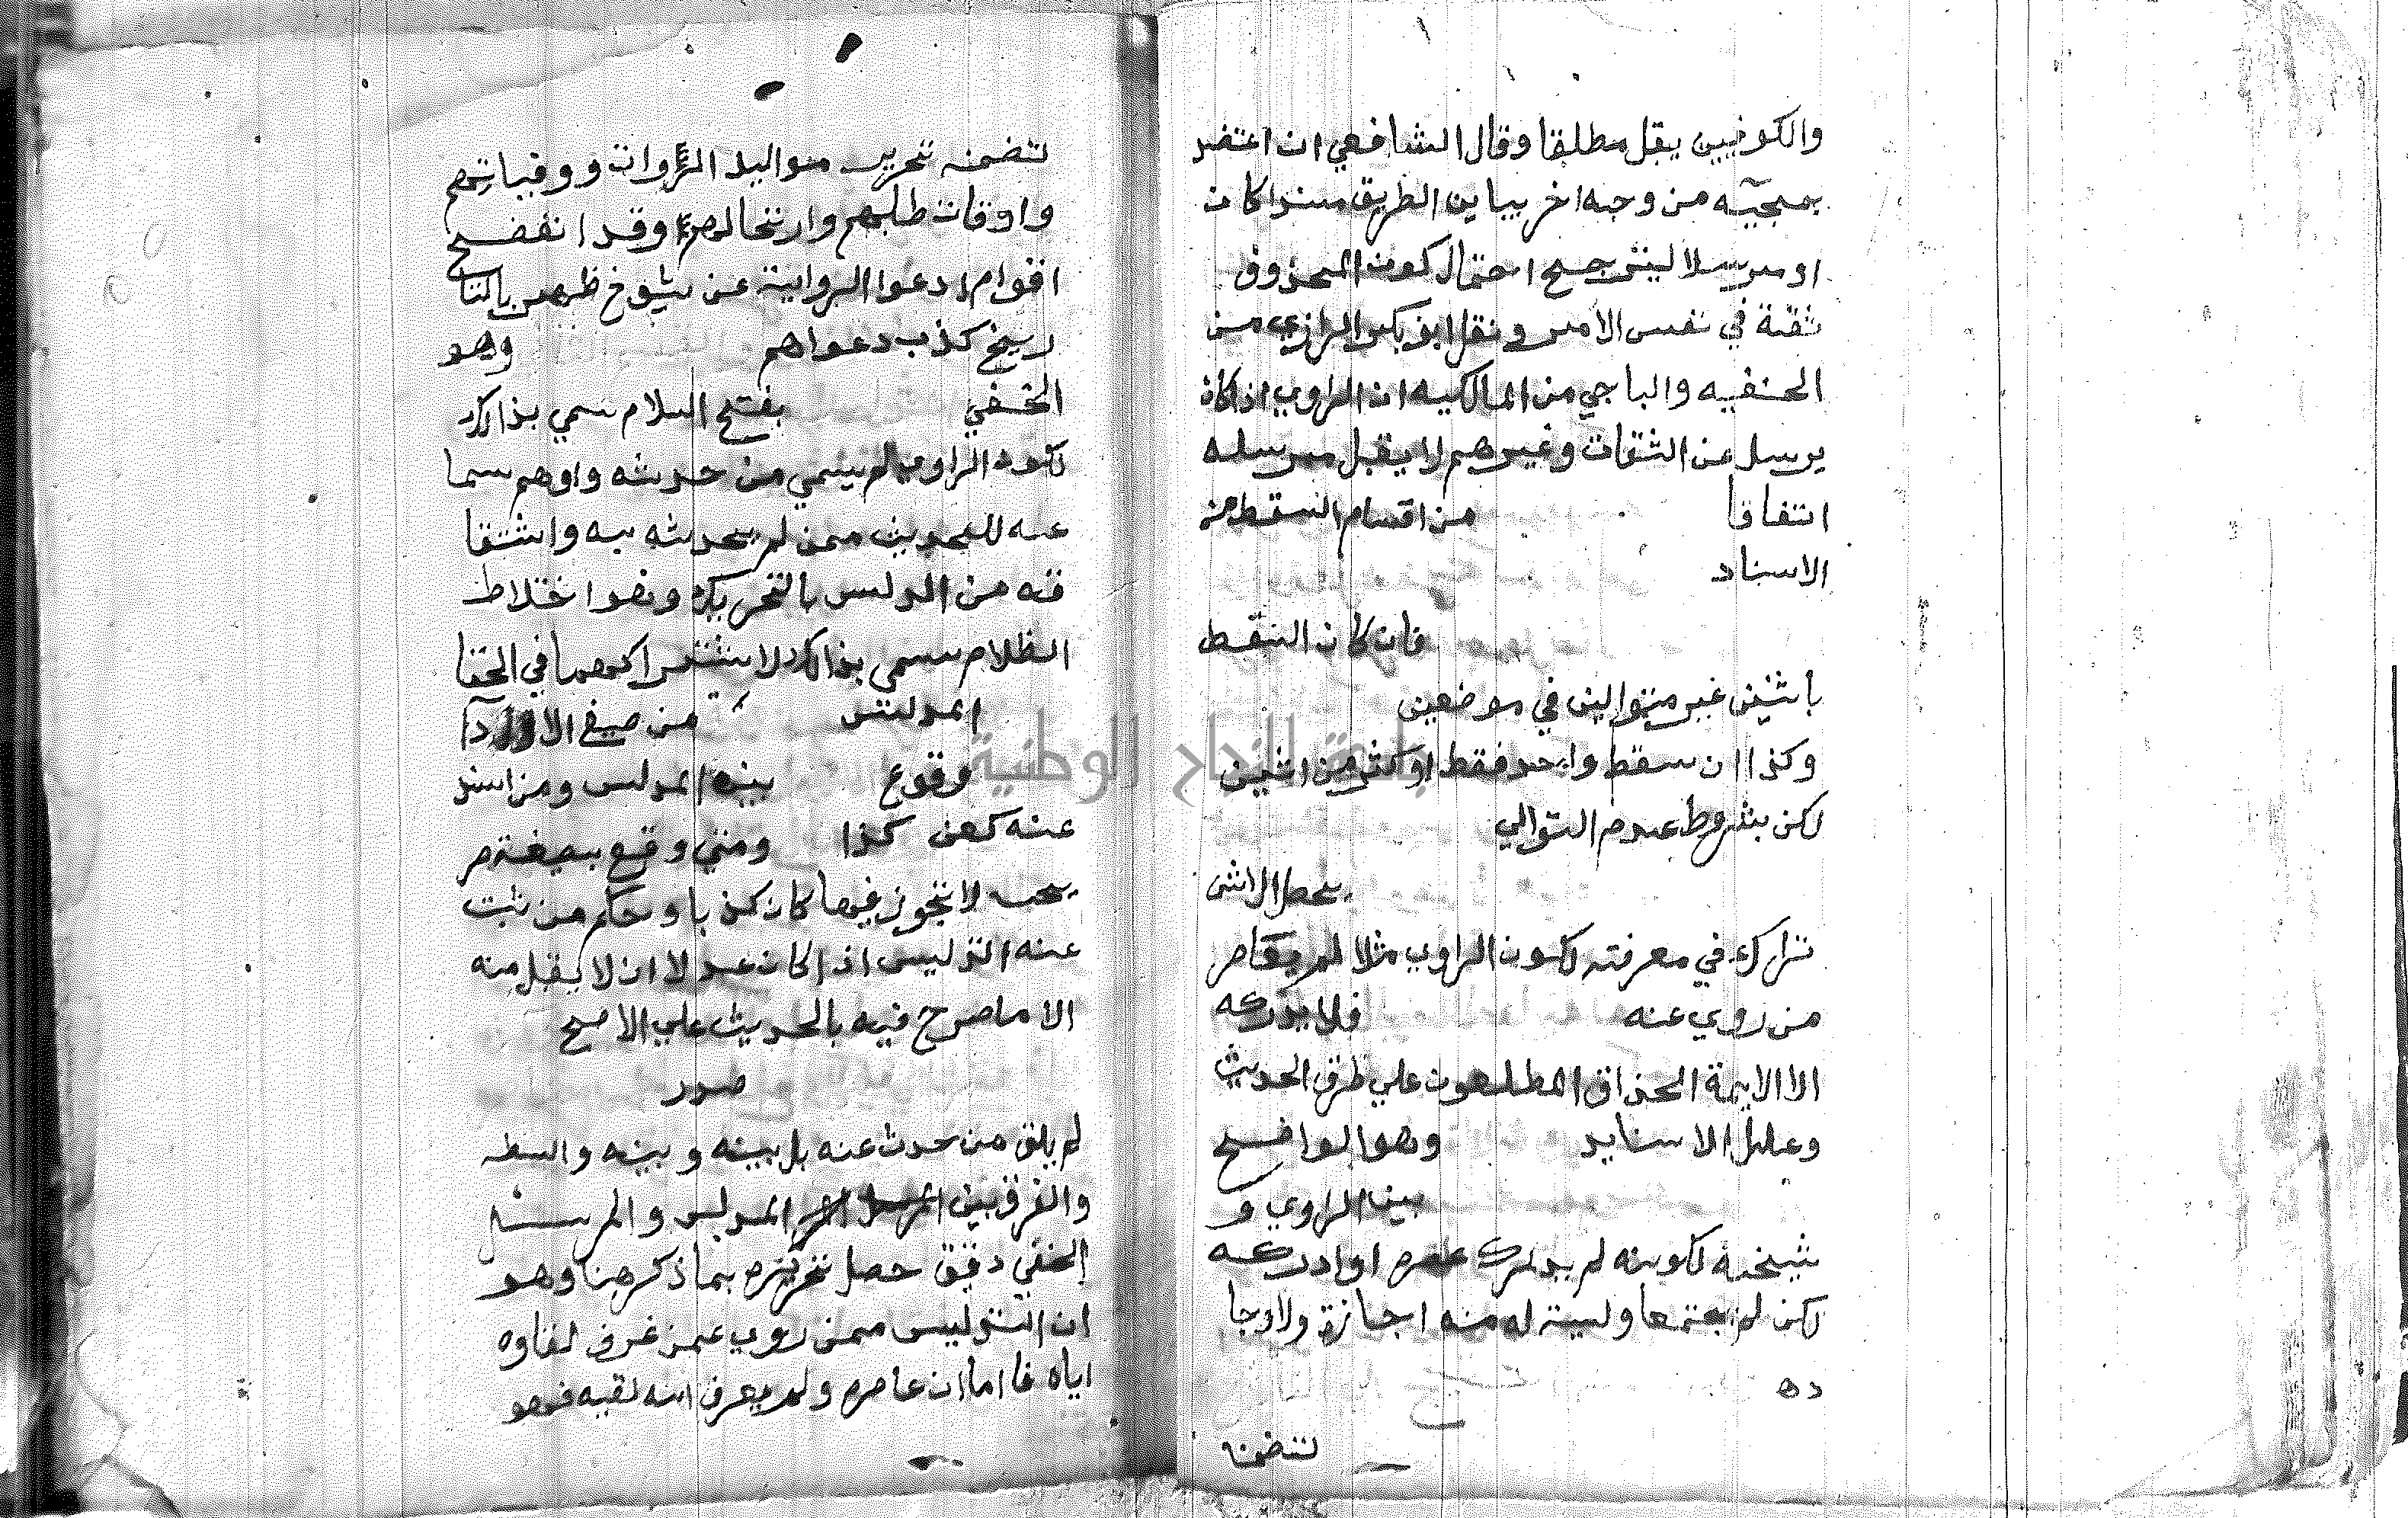 والكوفيين يقبل مطلقا وقال الشافعي ان اعتضد
بمجيئه من وجه اخر يباين الطريق مسندا كان
او مرسلا ليترجح احتمال كون المحذوف
ثقة في نفس الامر ونقل ابو بكر الرازي من
الحنفيه والباجي من المالكيه ان الراوي اذا كان
يرسل عن الثقات وغيرهم لا يقبل مرسله
اتفاقا من اقسام السقط من
الاسناد
فان كان السقط
باثنين غير متوالين في موضعين
وكذا ان سقط واحد فقط او اكثر من اثنين
لكن بشروط عدم التوالي
يحصل الاشـ
تراك في معرفته لكون الراوي مثلا لم يعاصر
من روي عنه فلا يدركه
الا الايمة الحذاق المطلعون علي طرق الحديث
وعلل الاسنايد وهو الواضح
بين الراوي و
شيخه لكونه لم يدرك عصره او ادركه
لكن لم يجتمعا وليست له منه اجازة ولا وجا
ده
لتضمنه
لتضمنه تحرير مواليد الروات ووفياتهم
واوقات طلبهم وارتحالهم وقد افتضح
اقوام ادعوا الرواية عن شيوخ ظهر بالتا
ريخ كذب دعواهم وهو
الخفي بفتح اللام سمي بذالك
لكون الراوي لم يسمي من حدثه واوهم سما
عه للحديث ممن لم يحدثه به واشتقا
قه من الدلس بالتحريك وهو اختلاط
الظلام سمي بذالك لاشتراكهما في الخفا
المدلس من صيغ الاداآ
وقوع بينه المدلس ومن اسند
عنه كعن كذا ومتي وقع بصيغة صر
يحه لا تجوز فيها كان كذبا وحكم من ثبت
عنه التدليس اذا كان عدلا ان لا يقبل منه
الا ما صرح فيه بالحديث علي الاصح
صدر
لم يلق من حدث عنه بل بينه وبينه واسطه
والفرق بين المدلس والمرسل
الخفي دقيق حصل تحريره بما ذكر هنا وهو
ان التدليس ممن روي عمن عرف لقاوه
اياه فاما ان عاصره ولم يعرف انه لقيه فهو
جامعة النجاح الوطنية